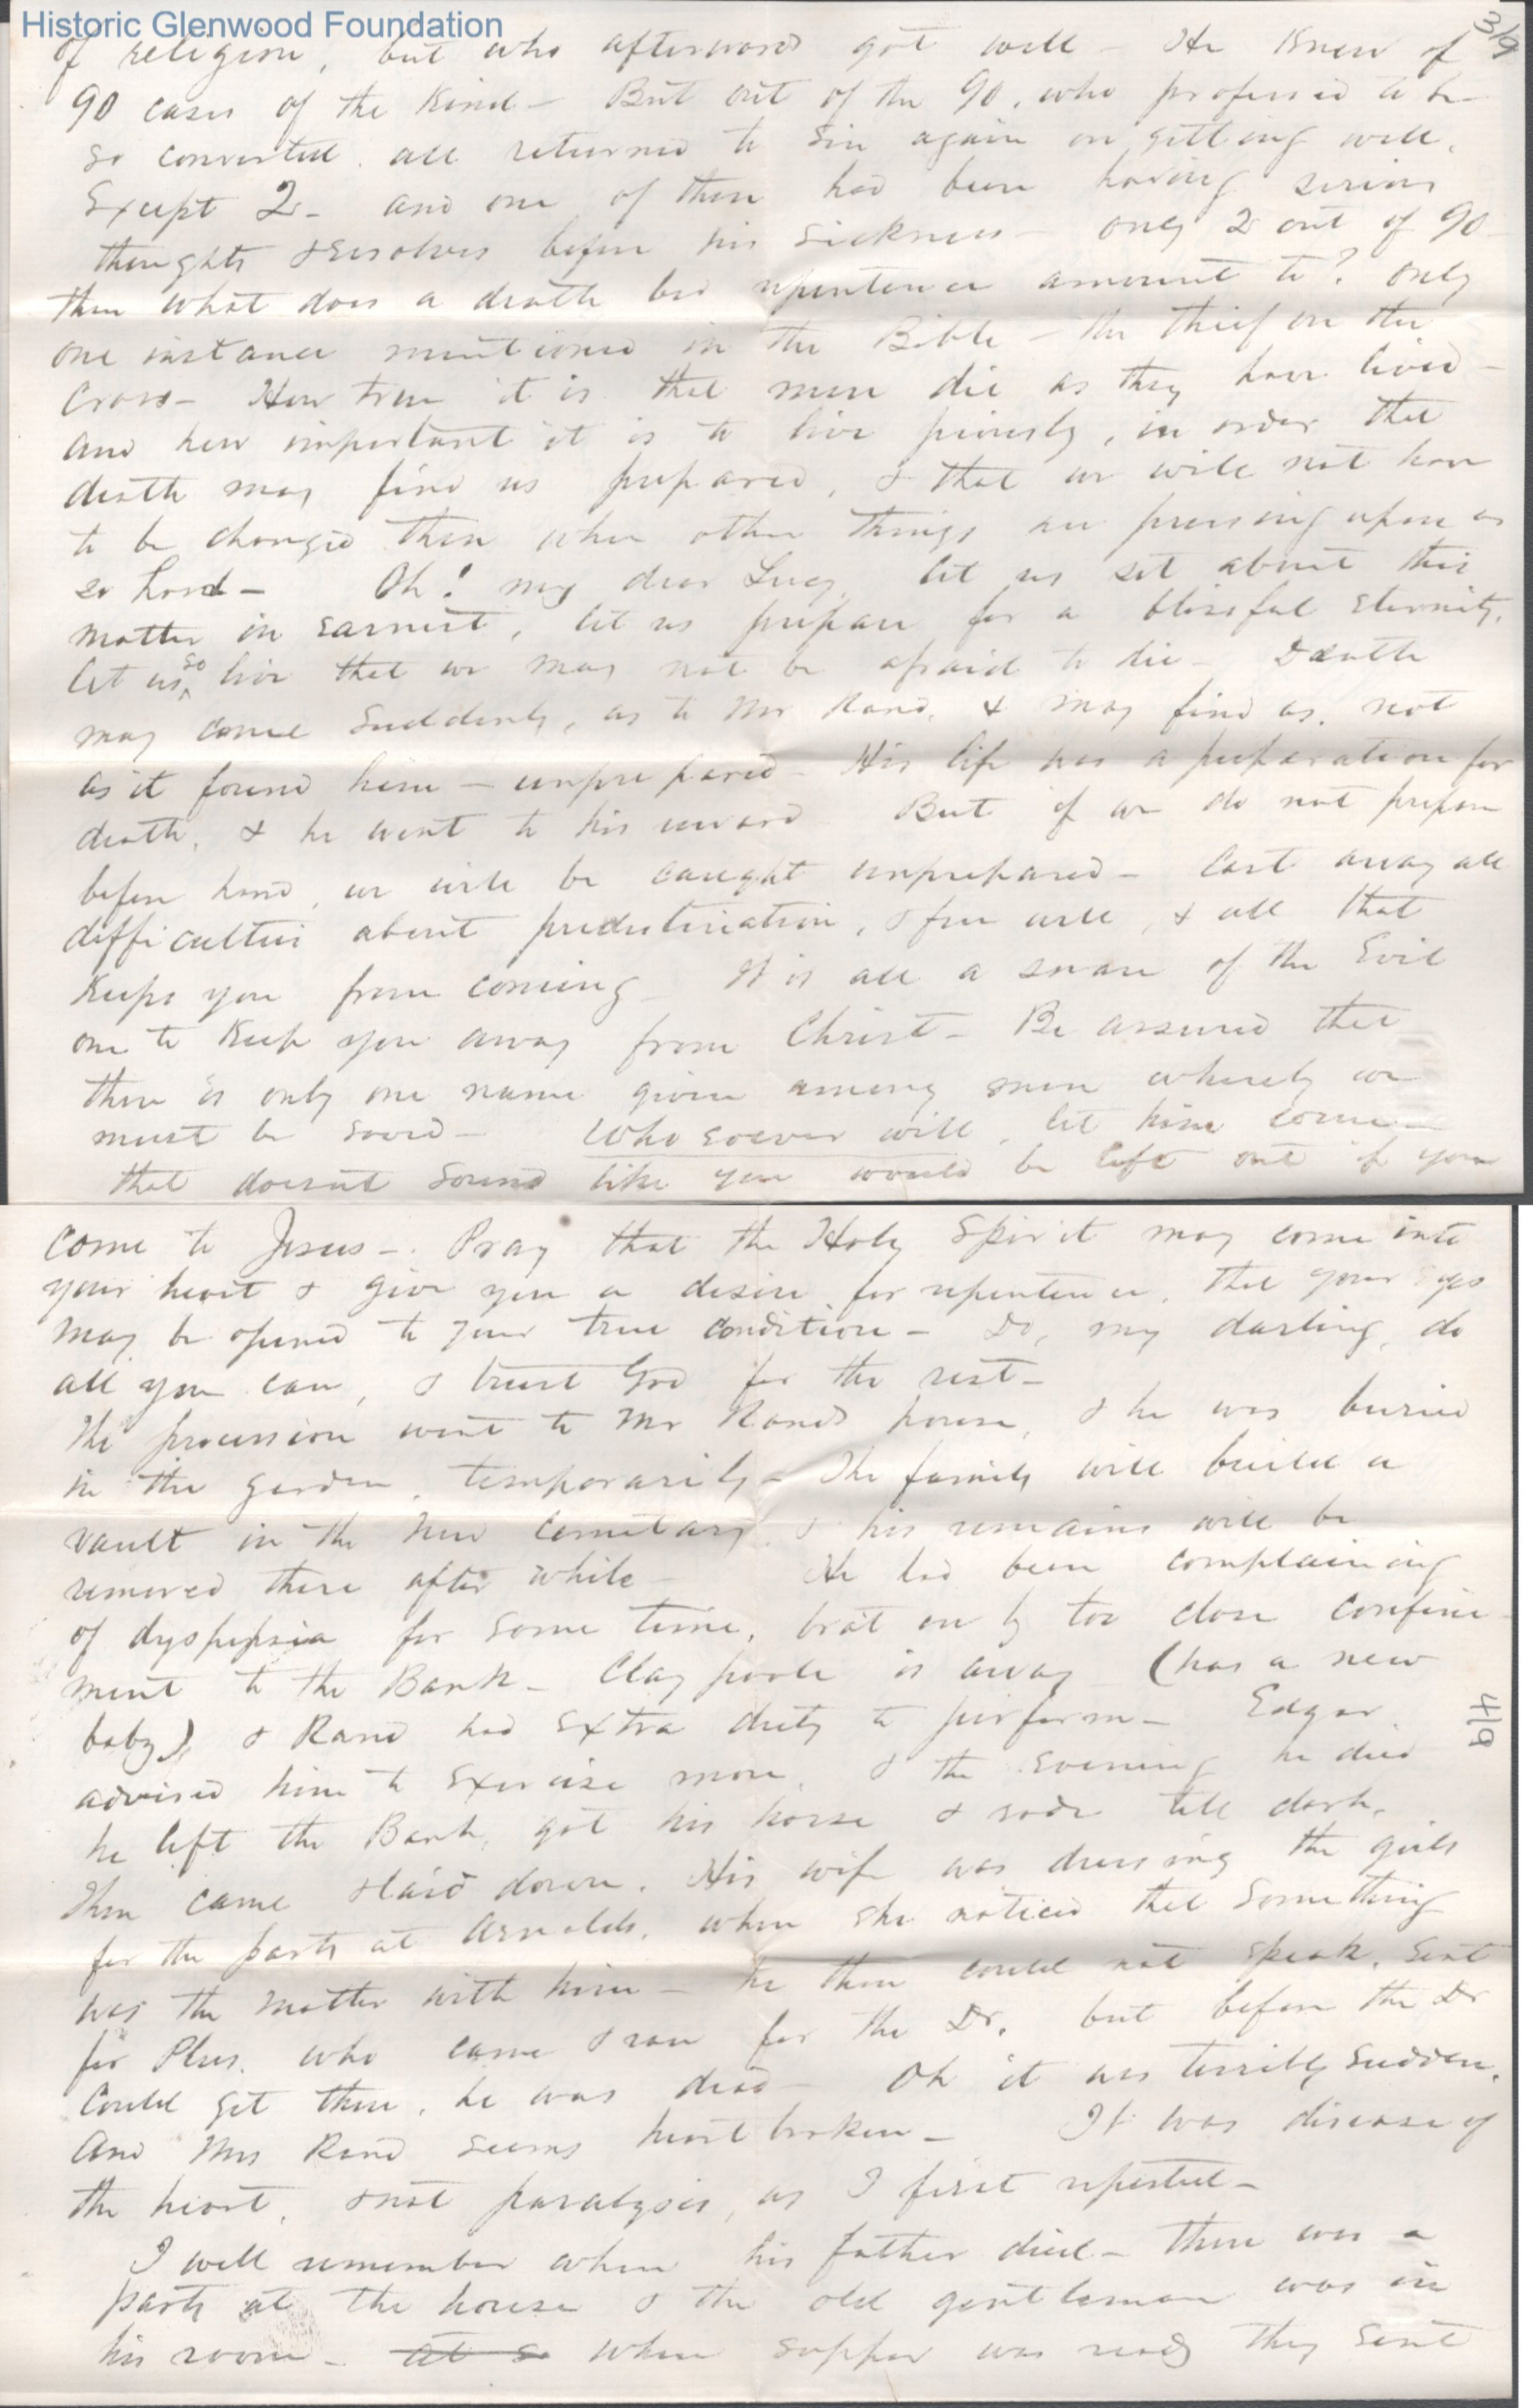 Historic Glenwood Foundation
3/9
of religion, but who afterwards got well - He knew of
90 cases of the kind - But out of the 90, who professed to be
so converted, all returned to sin again on getting well,
Except 2 - and one of them had been having serious
thoughts & resolves before his sickness - only 2 out of 90 -
then what does a death bed repentence amount to? only
one instance mentioned in the Bible - the thief on the
Cross - How true it is that men die as they have lived -
and how important it is to live piously, in order that
death may find us prepared, & that we will not have
to be changed then when other things are pressing upon us
so hard - Oh! my dear Lucy, let us set about this
matter in earnest, let us prepare for a blissful eternity,
let us so live that we may not be afraid to die - Death
may come suddenly, as to Mr Rand, & may find us, not
as it found him - unprepared - His life was a preparation for
death, & he went to his reward. But if we do not prepare
before hand, we will be caught unprepared - Cast away all
difficulties about predestination, & free will, & all that
keeps you from coming - It is all a snare of the Evil
one to keep you away from Christ - Be assured that
there is only one name given among men whereby we
must be saved - Whosoever will, let him come -
that doesnt sound like you would be left out if you
come to Jesus - Pray that the Holy Spirit may come into
your heart & give you a desire for repentence, that your eyes
may be opened to your true condition - Do, my darling, do
all you can, & trust God for the rest -
The procession went to Mr Rands house, & he was buried
in the garden, temporarily - The family will build a
vault in the New Cemetary & his remains will be
removed there after while - He had been complaining
of dyspepsia for some time, brot on by too close confine-
ment to the Bank - Claypoole is away (has a new
baby), & Rand had extra duty to perform - Edgar
4/9
advised him to exercise more, & the evening he died
he left the Bank, got his horse & rode till dark,
then came & laid down. His wife was dressing the girls
for the party at Arnolds, when she noticed that something
was the matter with him - he then could not speak, sent
for Plus, who came & ran for the Dr, but before the Dr
could get there, he was dead - Oh it was terribly sudden,
And Mrs Rand seems heart broken - It was disease of
the heart, & not paralysis, as I first reported -
I well remember when his father died - there was a
party at the house & the old gentleman was in
his room - at s when supper was ready they sent